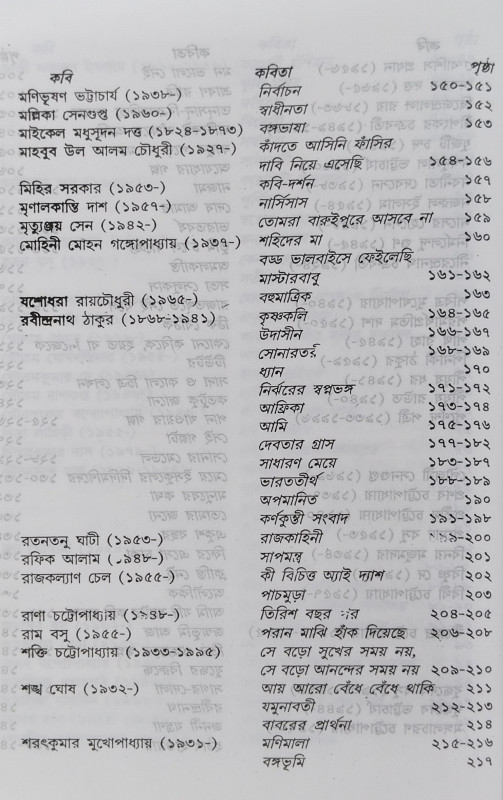 কবি কবিতা পৃষ্ঠা
মণিভূষণ ভট্টাচার্য (১৯৩৮-) নির্বাচন ১৫০-১৫১
মল্লিকা সেনগুপ্ত (১৯৬০-) স্বাধীনতা ১৫২
মাইকেল মধুসূদন দত্ত (১৮২৪-১৮৭৩) বঙ্গভাষা ১৫৩
মাহবুব উল আলম চৌধুরী (১৯২৭-) কাঁদতে আসিনি ফাঁসির
দাবি নিয়ে এসেছি ১৫৪-১৫৬
মিহির সরকার (১৯৫৩-) কবি-দর্শন ১৫৭
মৃণালকান্তি দাশ (১৯৫৭-) নার্সিসাস ১৫৮
মৃত্যুঞ্জয় সেন (১৯৪২-) তোমরা বারুইপুরে আসবে না ১৫৯
মোহিনী মোহন গঙ্গোপাধ্যায় (১৯৩৭-) শহিদের মা ১৬০
বড্ড ভালবাইসে ফেইলেছি
মাস্টারবাবু ১৬১-১৬২
যশোধরা রায়চৌধুরী (১৯৬৫-) বহুমাত্রিক ১৬৩
রবীন্দ্রনাথ ঠাকুর (১৮৬৮-১৯৪১) কৃষ্ণকলি ১৬৪-১৬৫
উদাসীন ১৬৬-১৬৭
সোনারতরী ১৬৮-১৬৯
ধ্যান ১৭০
নির্ঝরের স্বপ্নভঙ্গ ১৭১-১৭২
আফ্রিকা ১৭৩-১৭৪
আমি ১৭৫-১৭৬
দেবতার গ্রাস ১৭৭-১৮২
সাধারণ মেয়ে ১৮৩-১৮৭
ভারততীর্থ ১৮৮-১৮৯
অপমানিত ১৯০
কর্ণকুন্তী সংবাদ ১৯১-১৯৮
রতনতনু ঘাটী (১৯৫৩-) রাজকাহিনী ১৯৯-২০০
রফিক আলাম (১৯৪৮-) সাপমন্ত্র ২০১
রাজকল্যাণ চেল (১৯৫৫-) কী বিচিত্ত অ্যাই দ্যাশ ২০২
পাচমুড়া ২০৩
রাণা চট্টোপাধ্যায় (১৯৪৮-) তিরিশ বছর ২০৪-২০৫
রাম বসু (১৯৫৫-) পরান মাঝি হাঁক দিয়েছে ২০৬-২০৮
শক্তি চট্টোপাধ্যায় (১৯৩৩-১৯৯৫) সে বড়ো সুখের সময় নয়,
সে বড়ো আনন্দের সময় নয় ২০৯-২১০
শঙ্খ ঘোষ (১৯৩২-) আয় আরো বেঁধে বেঁধে থাকি ২১১
যমুনাবতী ২১২-২১৩
বাবরের প্রার্থনা ২১৪
শরৎকুমার মুখোপাধ্যায় (১৯৩১-) মণিমালা ২১৫-২১৬
বঙ্গভূমি ২১৭